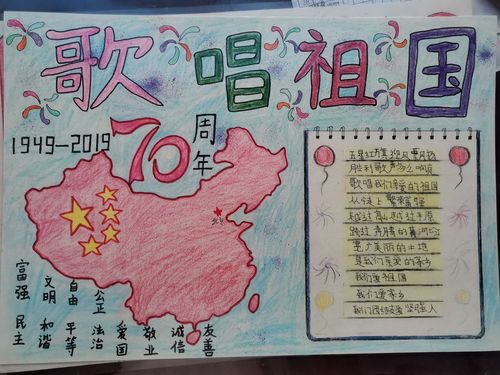 歌唱祖国
1949-2019
70
周年
五星红旗迎风飘扬
胜利歌声多么响亮
歌唱我们亲爱的祖国
从今走上繁荣富强
越过高山越过平原
跨过奔腾的黄河长江
宽广美丽的土地
是我们亲爱的家乡
我们爱祖国
我们爱家乡
我们团结友爱坚强
富强 民主
文明 和谐
自由 平等
公正 法治
爱国
敬业
诚信
友善